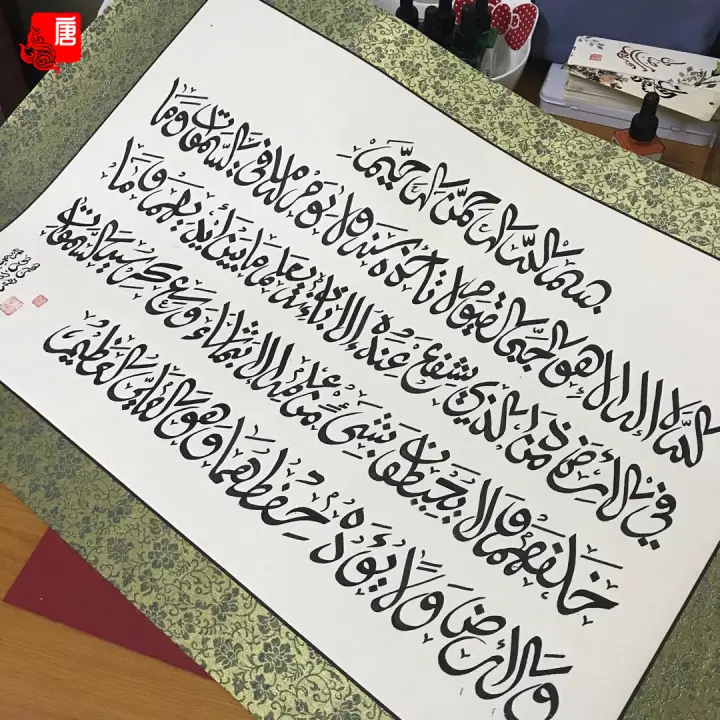 唐
بسم الله الرحمن الرحيم
الله لا إله إلا هو الحي القيوم لا تأخذه سنة ولا نوم له ما في السموات وما
في الأرض من ذا الذي يشفع عنده إلا بإذنه يعلم ما بين أيديهم وما
خلفهم ولا يحيطون بشيء من علمه إلا بما شاء وسع كرسيه السموات
والأرض ولا يؤده حفظهما وهو العلي العظيم